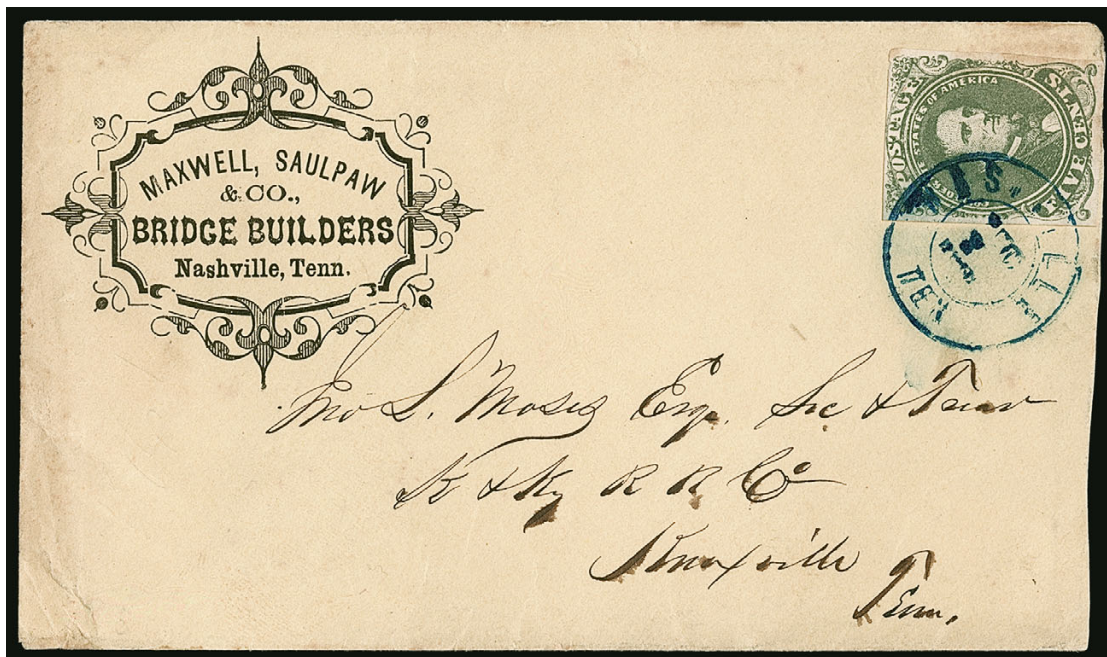 MAXWELL, SAULPAW
& CO.,
BRIDGE BUILDERS
Nashville, Tenn.
STATES OF AMERICA
POSTAGE
FIVE CENTS
DEC
TEN
Jno S. Moses Esq. Sec & Treas
K & Ky R R Co
Knoxville
Tenn.